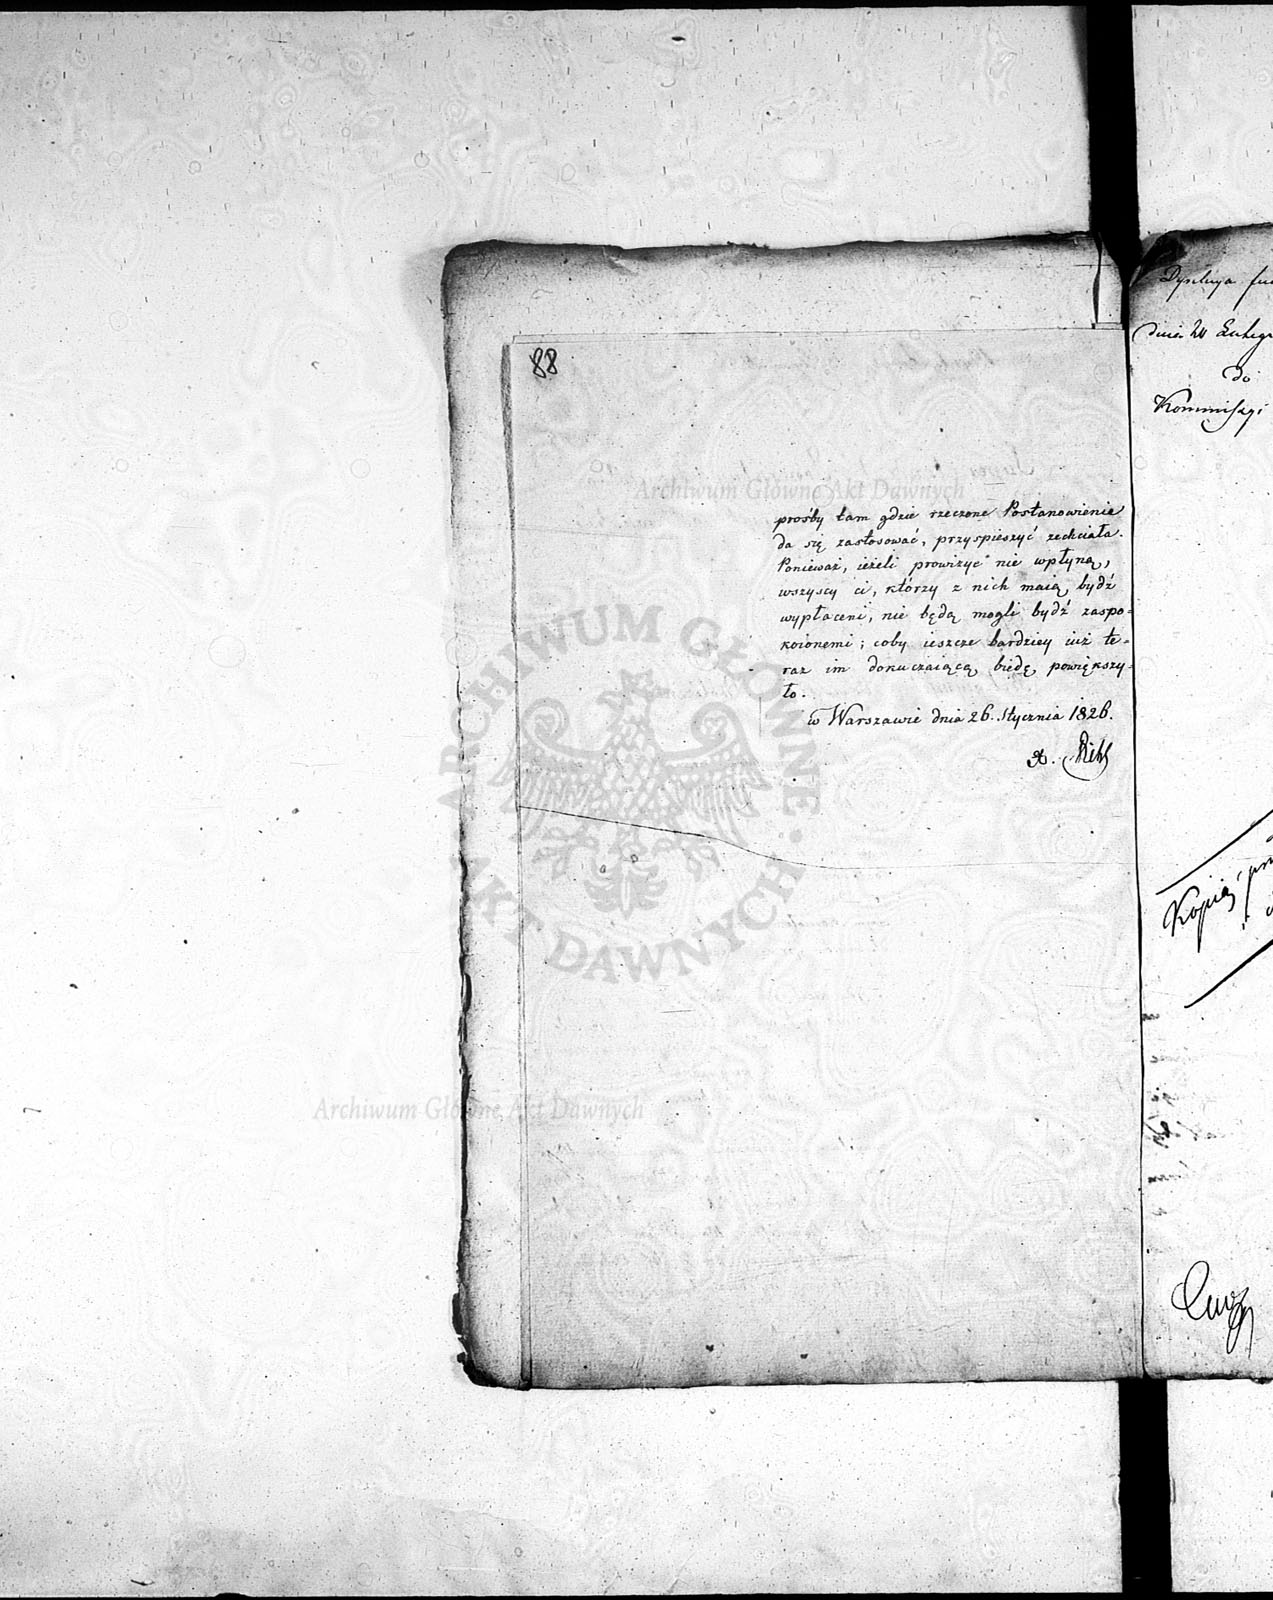 88
prośby tam gdzie rzeczone Postanowienie
da się zastosować, przyspieszyć zechciała.
Ponieważ, ieżeli prowizye nie wpłyną,
wszyscy ci, którzy z nich maią bydź
wypłaceni, nie będą mogli bydź zaspo-
koionemi; coby ieszcze bardziey iuż te-
raz im dokuczaiącą biedę, powiększy-
ło.
w Warszawie dnia 26. Stycznia 1826.
Archiwum Główne Akt Dawnych
ARCHIWUM GŁÓWNE AKT DAWNYCH
Archiwum Główne Akt Dawnych
dnia
do
Kommissyi